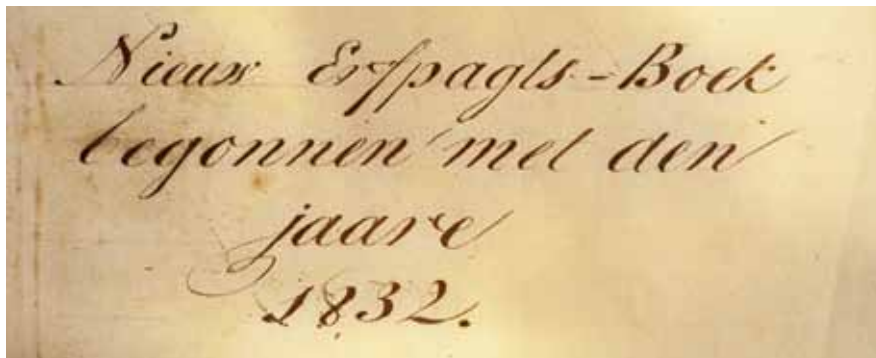 Nieuw Erfpagts-Boek
begonnen met den
jaare
1832.